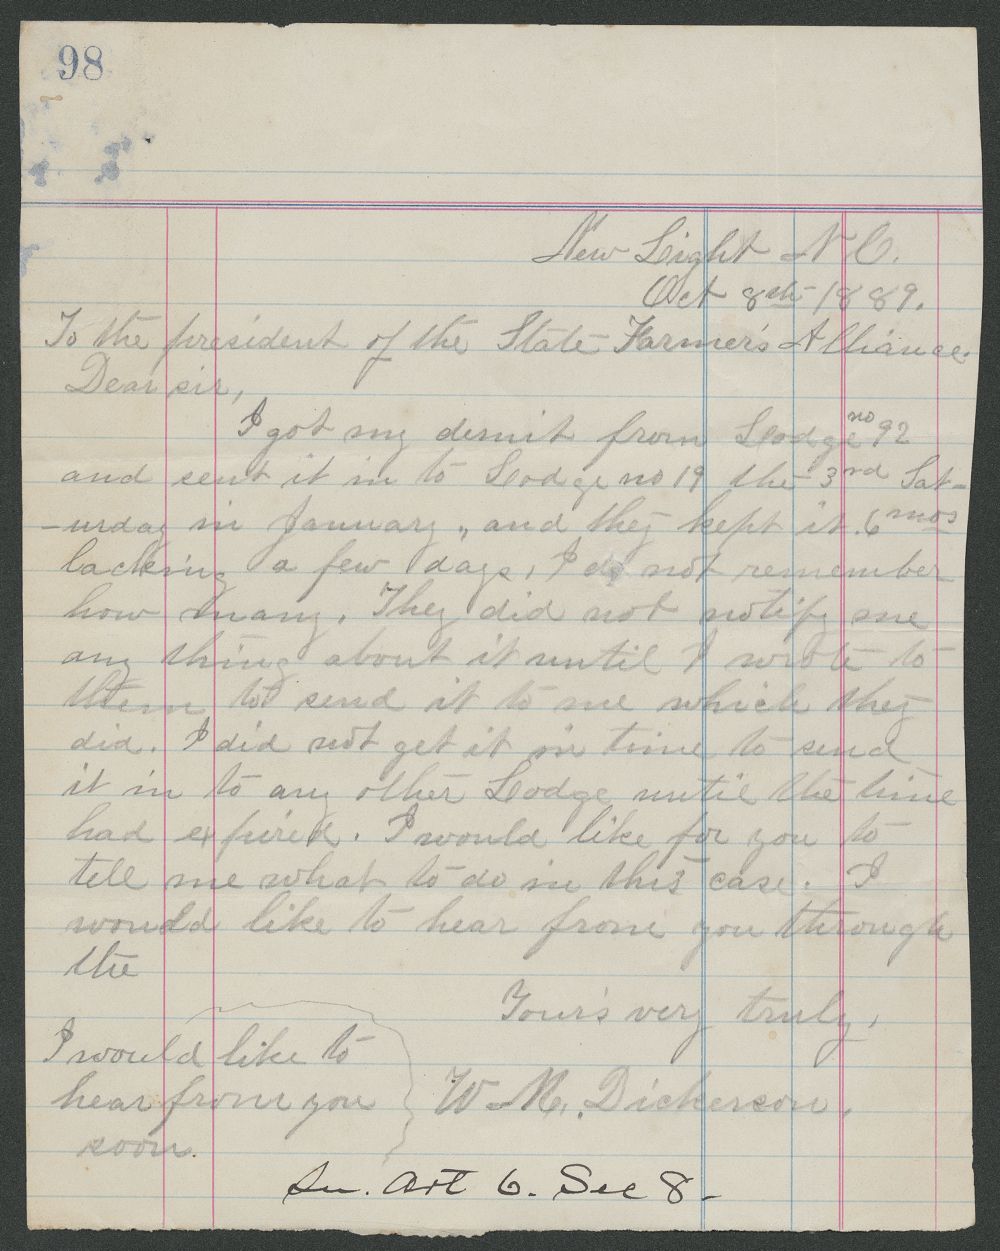 98
New Light N C.
Oct 8th 1889.
To the president of the State Farmer's Alliance.
Dear sir,
I got my demit from Lodge no 92
and sent it in to Lodge no 19 the 3rd Sat-
-urday in January, and they kept it 6 mos
lacking a few days, I do not remember
how many. They did not notify me
any thing about it until I wrote to
them to send it to me which they
did. I did not get it in time to send
it in to any other Lodge until the time
had expired. I would like for you to
tell me what to do in this case. I
would like to hear from you through
the
Your's very truly,
W. M. Dickerson.
I would like to
hear from you
soon.
In. Art 6. Sec 8-